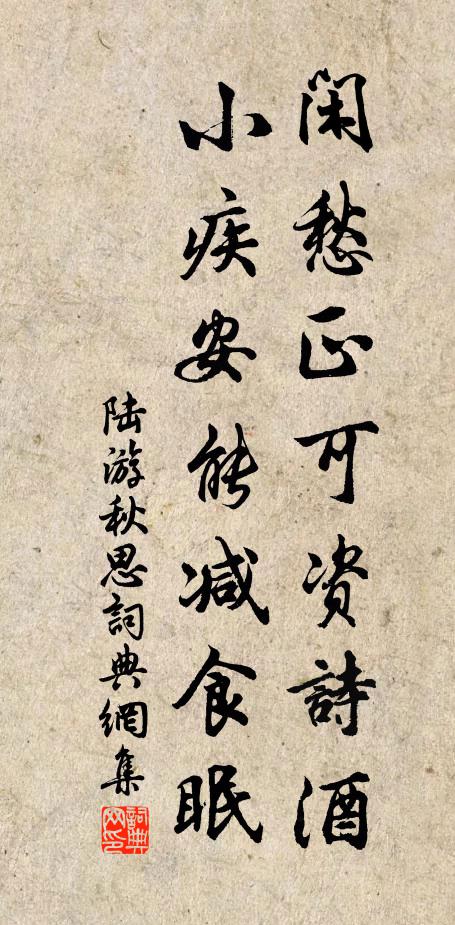 闲愁正可资詩酒
小疾安能減食眠
陆游秋思詞典網集
詞典网印